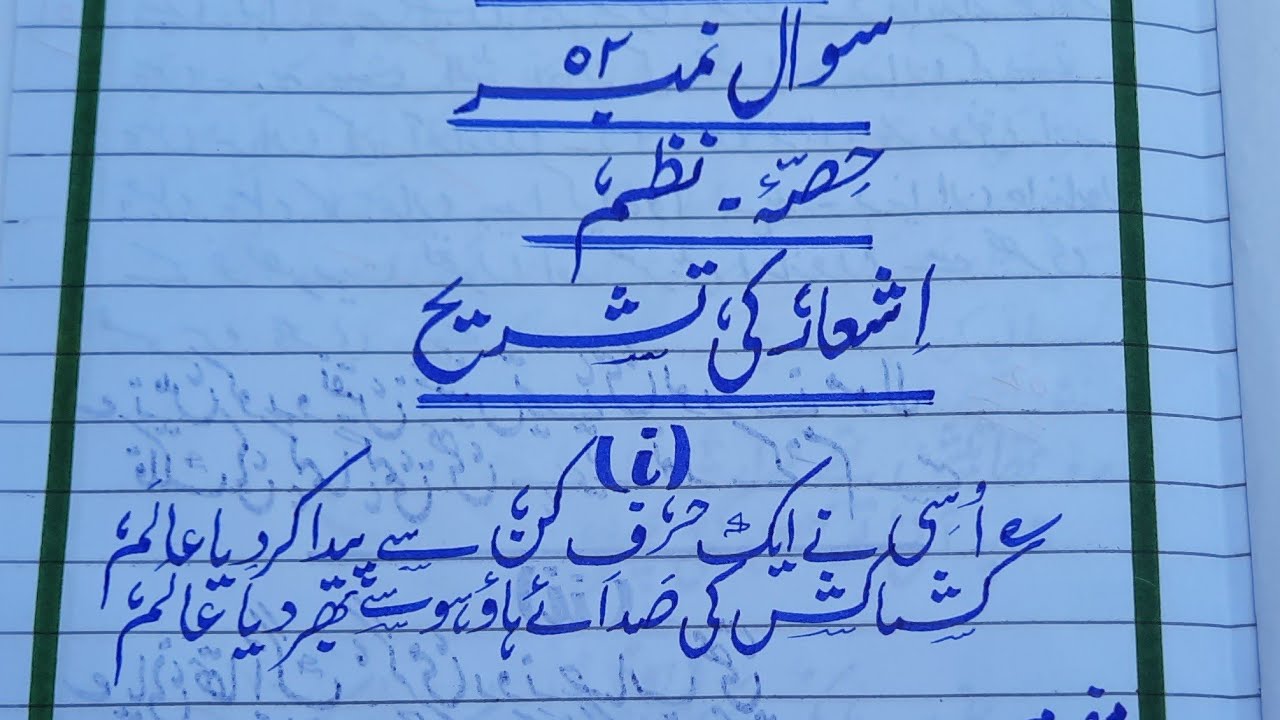 سوال نمبر ۵۲
حِصّۂ - نظم
اِشعار کی تشریح
(i)
؎ اُسی نے ایک حرف کن سے پیدا کر دیا عالم
کشاکش کی صدائے ہاؤ ہو سے بھر دیا عالم